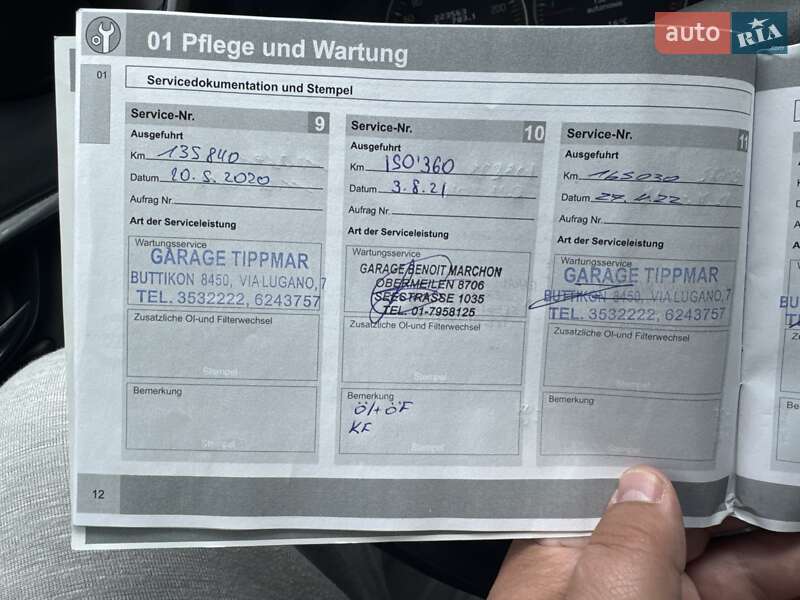 auto RIA
01 Pflege und Wartung
01
Servicedokumentation und Stempel
Service-Nr. 9
Ausgefuhrt
Km 135840
Datum 20.5.2020
Aufrag Nr.
Art der Serviceleistung
Wartungsservice
GARAGE TIPPMAR
BUTTIKON 8450, VIA LUGANO, 7
TEL. 3532222, 6243757
Zusatzliche Ol-und Filterwechsel
Stempel
Bemerkung
Stempel
Service-Nr. 10
Ausgefuhrt
Km 150'360
Datum 3.8.21
Aufrag Nr.
Art der Serviceleistung
Wartungsservice
GARAGE BENOIT MARCHON
OBERMEILEN 8706
SEESTRASSE 1035
TEL. 01-7958125
Zusatzliche Ol-und Filterwechsel
Stempel
Bemerkung
Öl+ÖF
KF
Stempel
Service-Nr. 11
Ausgefuhrt
Km 165030
Datum 27.4.22
Aufrag Nr.
Art der Serviceleistung
Wartungsservice
GARAGE TIPPMAR
BUTTIKON 8450, VIA LUGANO, 7
TEL. 3532222, 6243757
Zusatzliche Ol-und Filterwechsel
Stempel
Bemerkung
Stempel
12